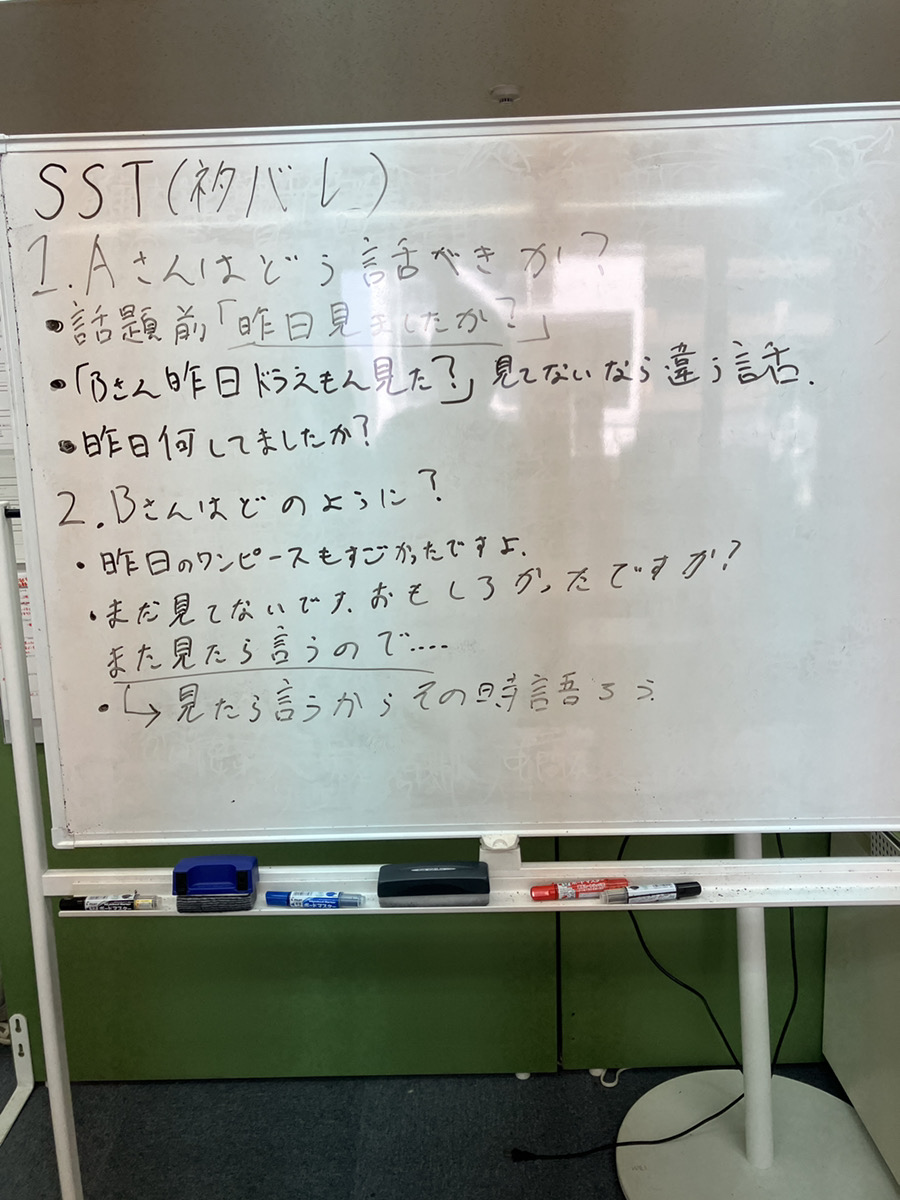 SST(ネタバレ)
1.Aさんはどう話べきか?
・話題前「昨日見ましたか?」
・「Bさん昨日ドラえもん見た?」見てないなら違う話.
・昨日何してましたか?
2.Bさんはどのように?
・昨日のワンピースもすごかったですよ.
・まだ見てないです.おもしろかったですか?
また見たら言うので....
・↳見たら言うからその時語ろう.
ボードマスター